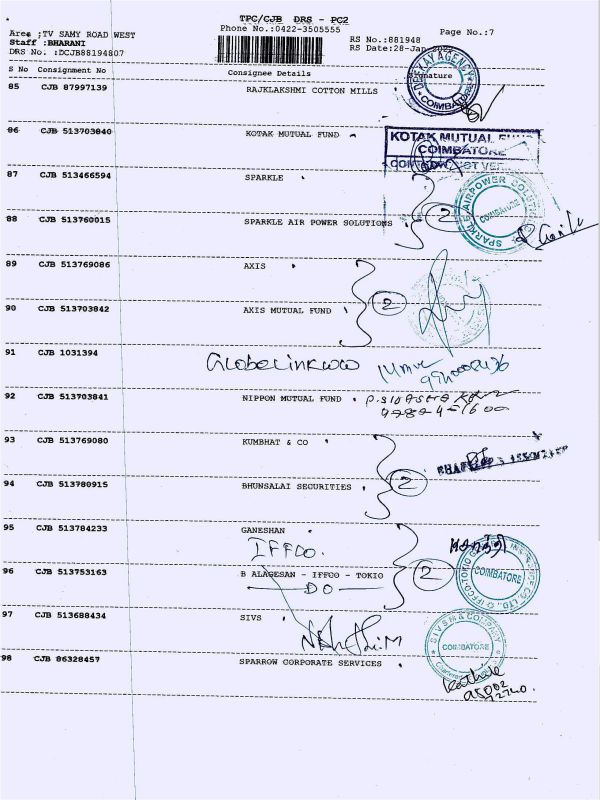 TPC/CJB DRS - PC2
Phone No.:0422-3505555
Page No.:7
Area ;TV SAMY ROAD WEST
Staff :BHARANI
DRS No. :DCJB88194807
RS No.:881948
RS Date:28-Jan-2022
S No Consignment No Consignee Details Signature
85 CJB 87997139 RAJKLAKSHMI COTTON MILLS
DEEJAY AGENCY
COIMBATORE
86 CJB 513703840 KOTAK MUTUAL FUND
KOTAK MUTUAL FUND
COIMBATORE
87 CJB 513466594 SPARKLE
88 CJB 513760015 SPARKLE AIR POWER SOLUTIONS
2
SPARKLE AIRPOWER SOLUTIONS
COIMBATORE
89 CJB 513769086 AXIS
90 CJB 513703842 AXIS MUTUAL FUND
2
91 CJB 1031394 GlobeLinkWW
92 CJB 513703841 NIPPON MUTUAL FUND
93 CJB 513769080 KUMBHAT & CO
94 CJB 513780915 BHUNSALAI SECURITIES
2
95 CJB 513784233 GANESHAN
IFFCO.
96 CJB 513753163 B ALAGESAN - IFFCO - TOKIO
DO
2
COIMBATORE
97 CJB 513688434 SIVS
SIVSM & COMPANY
COIMBATORE
98 CJB 86328457 SPARROW CORPORATE SERVICES